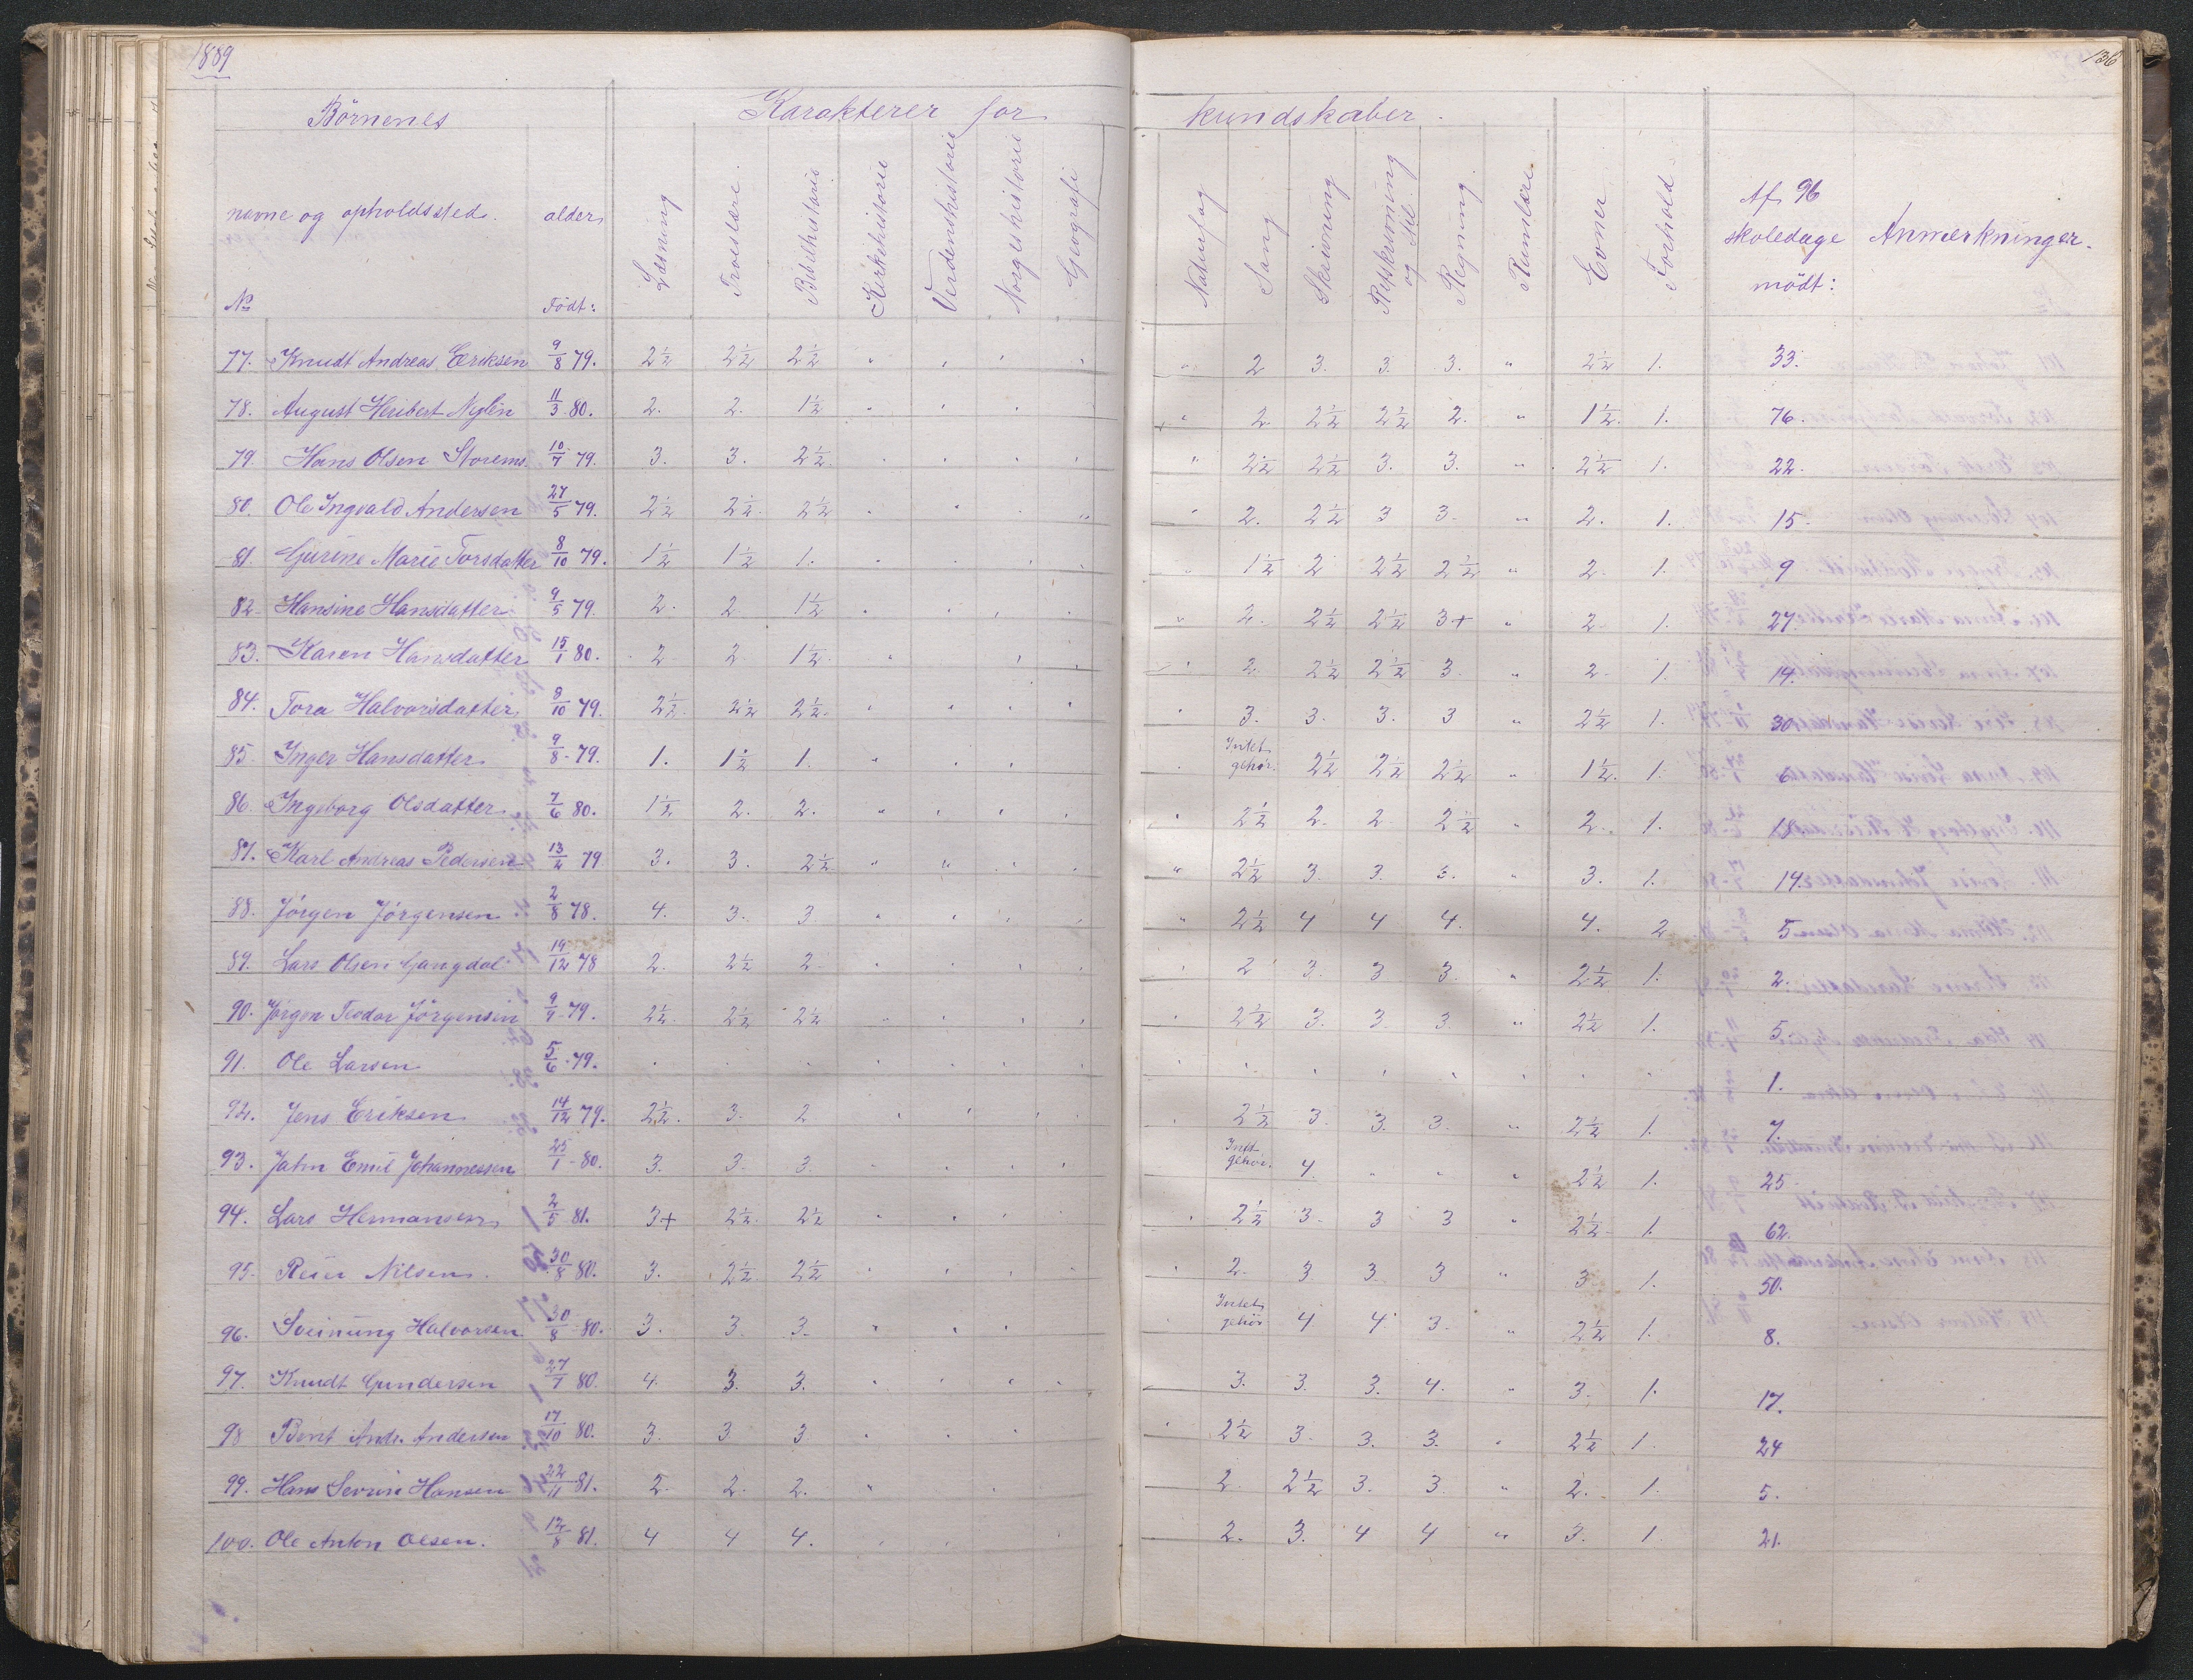 1889
136
Börnenes Karakterer for kundskaber.
navne og opholdssted. alder Læsning Troeslære. Bibelhistorie Kirkehistorie Verdenshistorie Norgeshistorie Geografi Naturfag Sang Skrivning Retskrivning og stil. Regning. Rumlære. Evner Forhold Af 96 skoledage mödt: Anmærkninger.
No Födt:
77. Knudt Andreas Eriksen 9/8 79. 2½ 2½ 2½ " " " " " 2 3. 3. 3. " 2½ 1. 33.
78. August Heribert Nylén 11/3 80. 2. 2. 1½ " " " " " 2. 2½ 2½ 2. " 1½. 1. 76.
79. Hans Olsen Storems. 10/7 79. 3. 3. 2½. " " " " " 2½ 2½ 3. 3. " 2½ 1. 22.
80. Ole Ingvald Andersen 27/5 79. 2½ 2½. 2½ " " " " " 2. 2½ 3 3. " 2. 1. 15.
81. Gurine Marie Torsdatter 8/10 79. 1½ 1½ 1. " " " " " 1½ 2 2½ 2½ " 2. 1. 9
82. Hansine Hansdatter 9/5 79. 2. 2 1½ " " " " " 2. 2½ 2½ 3+ " 2. 1. 27.
83. Karen Hansdatter 15/1 80. 2 2. 1½. " " " " 2 2½ 2½ 3. " 2. 1. 14.
84. Tora Halvorsdatter 8/10 79. 2½. 2½ 2½. " " " " " 3. 3. 3. 3 " 2½ 1. 30.
85. Inger Hansdatter 9/8 - 79. 1. 1½ 1. " " " " Intet gehör. 2½ 2½ 2½ " 1½. 1. 6.
86. Ingeborg Olsdatter 7/6 80. 1½ 2. 2. " " " " " 2½ 2. 2 2½ " 2. 1. 18
87. Karl Andreas Pedersen 13/4 79 3. 3. 2½ " " " " " 2½ 3. 3. 3. " 3. 1. 14.
88. Jörgen Jörgensen 2/8 78. 4. 3. 3. " " " " " 2½ 4 4 4. 4. 2 5
89. Lars Olsen Gangdal 19/12 78 2. 2½ 2. " " " " " 2 3. 3 3. " 2½ 1. 2.
90. Jörgen Teodor Jörgensen 9/9 - 79. 2½. 2½ 2½ " " " " " 2½ 3. 3. 3. " 2½ 1. 5.
91. Ole Larsen 5/6 - 79. " " " " " " " " " " " " " " " 1.
92. Jens Eriksen 14/12 79. 2½. 3. 2 " " " " " 2½ 3. 3. 3. " 2½ 1. 7.
93. Jahn Emil Johannessen 25/1 - 80. 3. 3. 3. " " " " Intet gehör. 4 " " " 2½ 1. 25.
94. Lars Hermansen 2/5 81. 3+ 2½. 2½ " " " " " 2½ 3. 3 3 " 2½ 1. 62.
95. Reier Nilsen. 30/8 80. 3. 2½. 2½ " " " " " 2. 3. 3. 3 " 3. 1. 50.
96. Sveinung Halvorsen 30/8 - 80. 3. 3. 3. " " " Intet gehör 4 4. 3. " 2½ 1. 8.
97. Knudt Gundersen 27/7 80. 4. 3. 3. " " " " 3. 3. 3. 4. " 3. 1. 17.
98 Bent Andr. Andersen 17/10 80. 3. 3. 3 " " " " 2½ 3. 3. 3. " 2½ 1. 24
99. Hans Severin Hansen 22/11 81. 2. 2. 2. " " 2 2½ 3. 3. " 2. 1. 5.
100. Ole Anton Olsen. 12/8 81. 4 4 4. " " " 2. 3. 4 4 " 3. 1. 21.